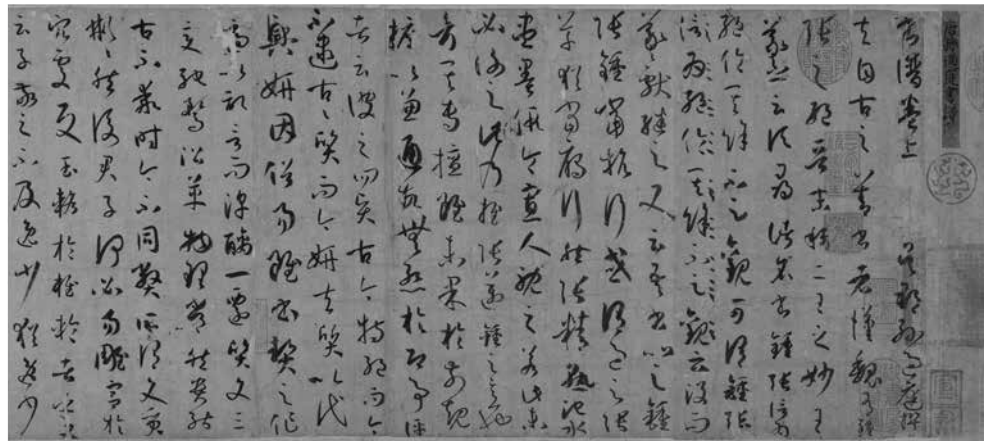 書譜卷上 吳郡孫過庭撰
夫自古之善書者漢魏有鍾
張之絕晉末稱二王之妙王
羲之云頃尋諸名書鍾張信為
絕倫其餘不足觀可謂鍾張
信為絕倫其餘不足觀云沒而
羲獻繼之又云吾書比之鍾
張鍾當抗行或謂過之張
草猶當雁行然張精熟池水
盡墨假令寡人耽之若此未
必謝之此乃推張邁鍾之意也
考其專擅雖未果於前規
摭以兼通故無慚於即事評
者云彼之四賢古今特絕而今
不逮古古質而今妍夫質以代
興妍因俗易雖書契之作
適以記言而淳醨一遷質文三
變馳鶩沿革物理常然貴能
古不乖時今不同弊所謂文質
彬彬然後君子何必易雕宮於
穴處反玉輅於椎輪者乎又
云子敬之不及逸少猶逸少